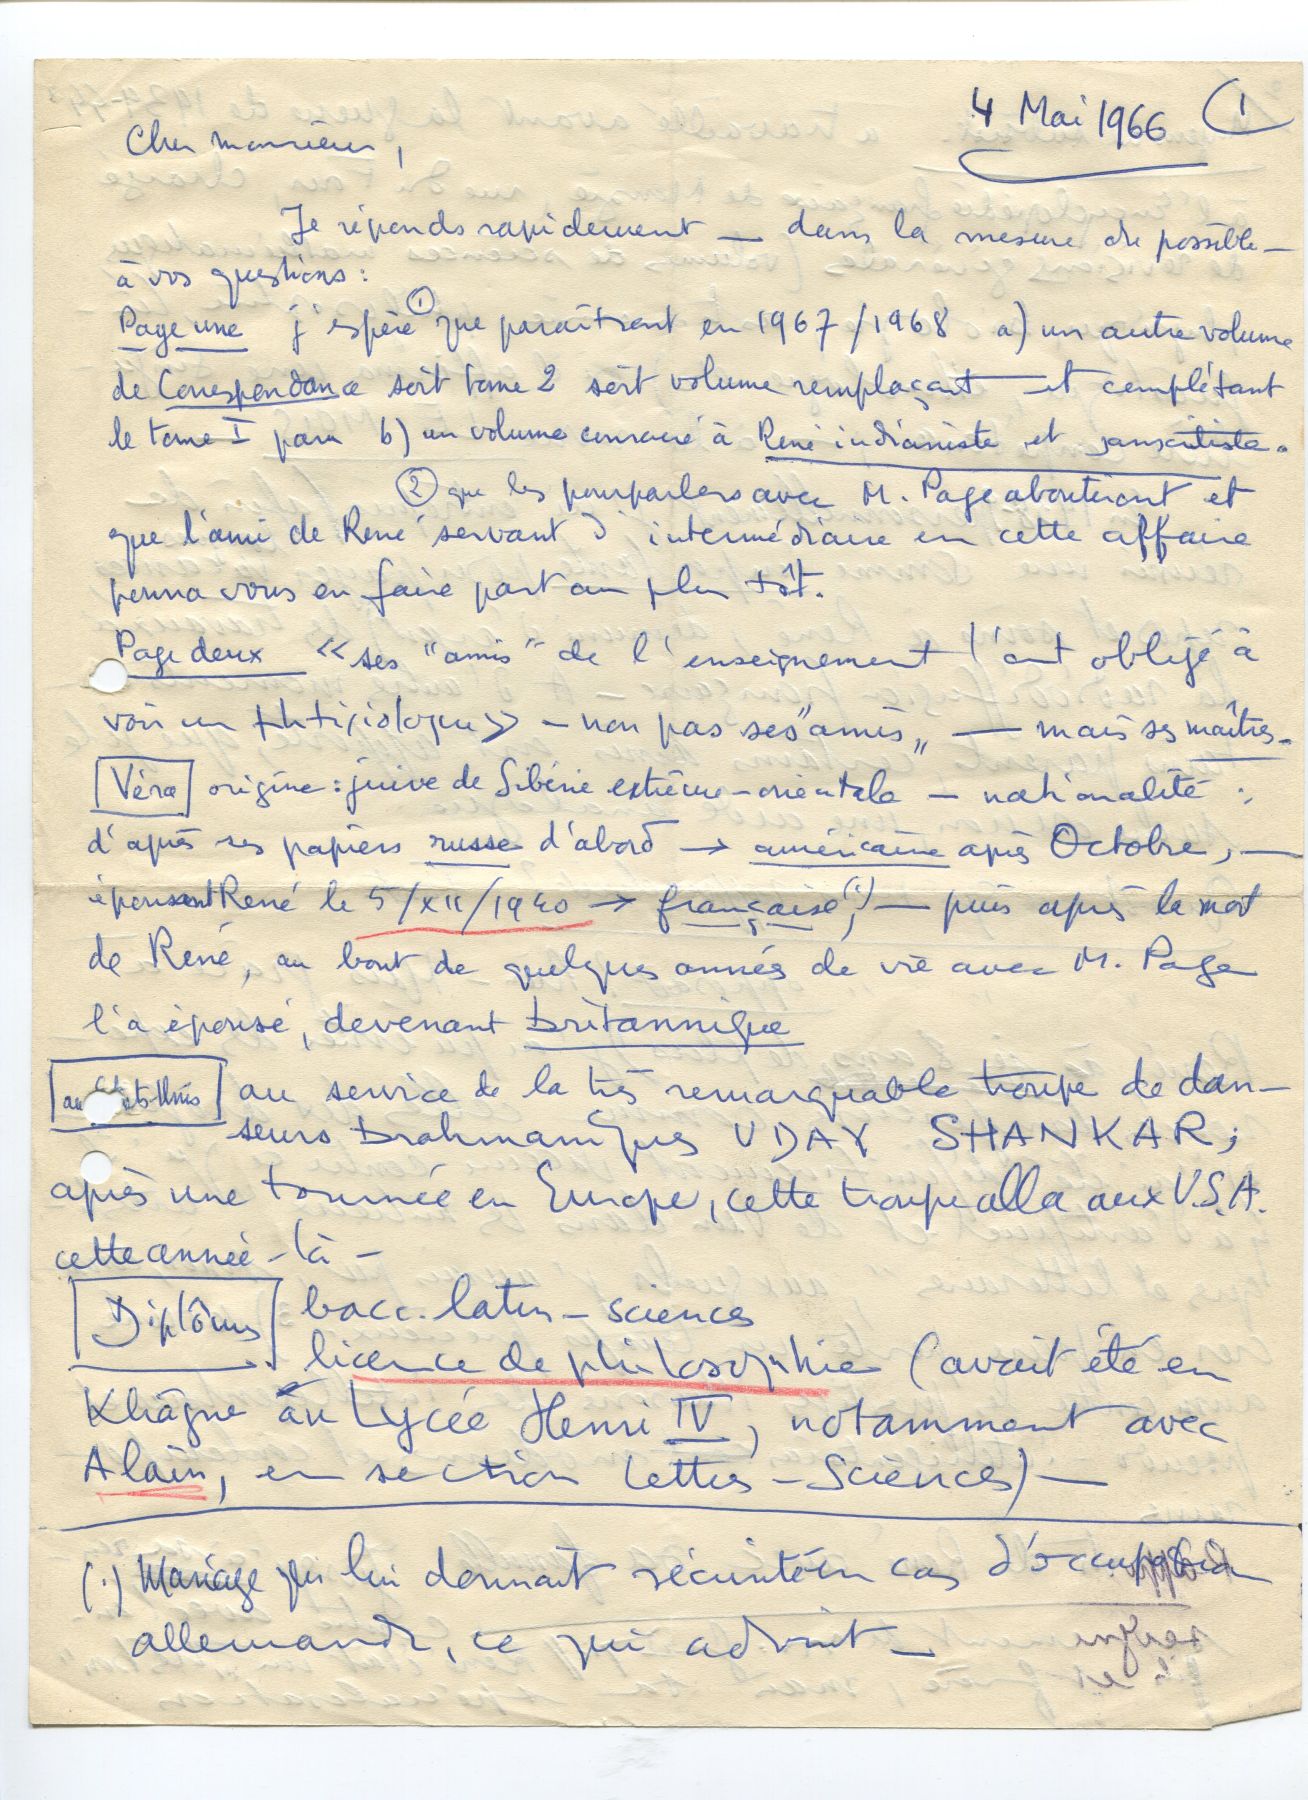 4 Mai 1966 (1
Cher monsieur,
Je réponds rapidement — dans la mesure du possible —
à vos questions :
Page une j'espère ① que paraîtront en 1967/1968 a) un autre volume
de Correspondance soit tome 2 soit volume remplaçant — et complétant
le tome I paru b) un volume consacré à René indianiste et sanscritiste.
② que les pourparlers avec M. Page aboutiront et
que l'ami de René servant d'intermédiaire en cette affaire
pourra vous en faire part au plus tôt.
Page deux « ses "amis" de l'enseignement l'ont obligé à
voir un phtisiologue » — non pas ses "amis" — mais ses maîtres.
Véra origine : juive de Sibérie extrême-orientale — nationalité :
d'après ses papiers russe d'abord → américaine après Octobre, —
épousant René le 5/XII/1940 → française (1), — puis après la mort
de René, au bout de quelques années de vie avec M. Page
l'a épousé, devenant britannique
aux Etats-Unis au service de la très remarquable troupe de dan-
seurs brahmaniques UDAY SHANKAR ;
après une tournée en Europe, cette troupe alla aux U.S.A.
cette année-là —
Diplômes bacc. latin-sciences
licence de philosophie (avait été en
Khâgne au Lycée Henri IV, notamment avec
Alain, en section Lettres-Sciences) —
(1) Mariage qui lui donnait sécurité en cas d'occupation
allemande, ce qui advint —